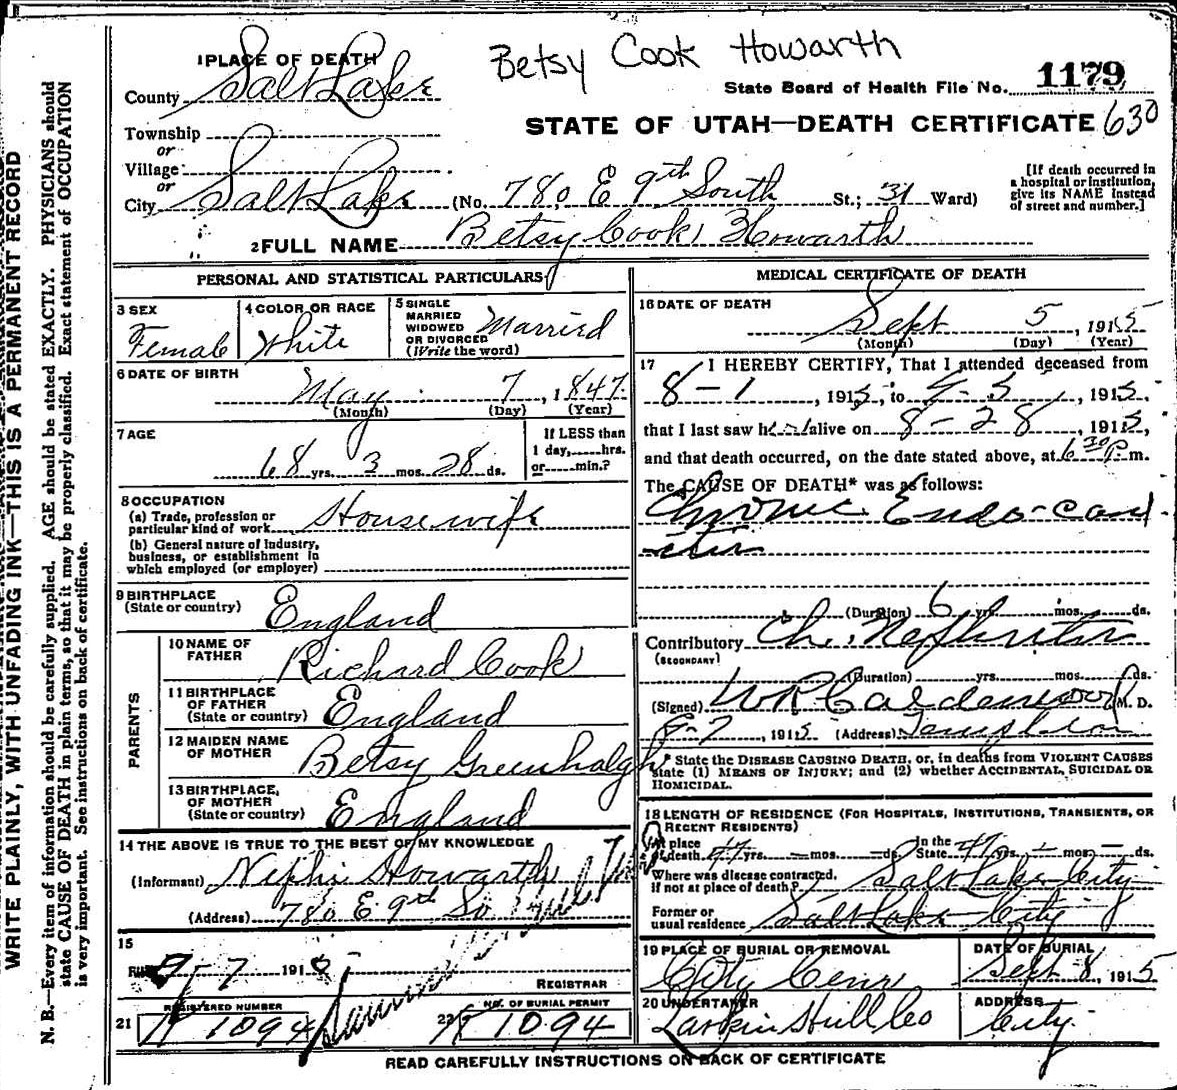 Betsy Cook Howarth
1 PLACE OF DEATH
County Salt Lake
State Board of Health File No. 1179
STATE OF UTAH—DEATH CERTIFICATE 630
Township
or
Village
or
City Salt Lake (No. 780 E 9th South St.; 31 Ward)
[If death occurred in
a hospital or institution,
give its NAME instead
of street and number.]
2 FULL NAME Betsy Cook Howarth
PERSONAL AND STATISTICAL PARTICULARS
3 SEX
Female
4 COLOR OR RACE
White
5 SINGLE
MARRIED
WIDOWED
OR DIVORCED
(Write the word)
Married
6 DATE OF BIRTH
May 7, 1847.
(Month) (Day) (Year)
7 AGE
68 yrs. 3 mos. 28 ds.
If LESS than
1 day,......hrs.
or......min.?
8 OCCUPATION
(a) Trade, profession or
particular kind of work Housewife
(b) General nature of industry,
business, or establishment in
which employed (or employer)
9 BIRTHPLACE
(State or country) England
PARENTS
10 NAME OF
FATHER Richard Cook
11 BIRTHPLACE
OF FATHER
(State or country) England
12 MAIDEN NAME
OF MOTHER Betsy Greenhalgh
13 BIRTHPLACE,
OF MOTHER
(State or country) England
14 THE ABOVE IS TRUE TO THE BEST OF MY KNOWLEDGE
(Informant) Nephi Howarth
(Address) 780 E 9th So
15
9-7 191
REGISTRAR
REGISTERED NUMBER
21 1094
NO. OF BURIAL PERMIT
22 1094
MEDICAL CERTIFICATE OF DEATH
16 DATE OF DEATH
Sept 5, 1915
(Month) (Day) (Year)
17 I HEREBY CERTIFY, That I attended deceased from
8-1, 1915, to 9-5, 1915.
that I last saw her alive on 8-28, 1915,
and that death occurred, on the date stated above, at 6 30 P. m.
The CAUSE OF DEATH* was as follows:
Chronic Endo-card
itis
(Duration) 6 yrs. mos. ds.
Contributory Ch. Nephritis
(SECONDARY)
(Duration) yrs. mos. ds.
(Signed) W R Calderwood M. D.
9-7, 1915 (Address) Templeton
* State the DISEASE CAUSING DEATH, or, in deaths from VIOLENT CAUSES
state (1) MEANS OF INJURY; and (2) whether ACCIDENTAL, SUICIDAL OR
HOMICIDAL.
18 LENGTH OF RESIDENCE (FOR HOSPITALS, INSTITUTIONS, TRANSIENTS, OR
RECENT RESIDENTS)
At place
of death 47 yrs. — mos. — ds. In the State 47 yrs. — mos. — ds.
Where was disease contracted,
If not at place of death? Salt Lake City
Former or
usual residence Salt Lake City
19 PLACE OF BURIAL OR REMOVAL
City Cem
DATE OF BURIAL
Sept 8, 1915
20 UNDERTAKER
Larkin Hull Co
ADDRESS
City.
READ CAREFULLY INSTRUCTIONS ON BACK OF CERTIFICATE
WRITE PLAINLY, WITH UNFADING INK—THIS IS A PERMANENT RECORD
N. B.—Every item of information should be carefully supplied. AGE should be stated EXACTLY. PHYSICIANS should
state CAUSE OF DEATH in plain terms, so that it may be properly classified. Exact statement of OCCUPATION
is very important. See instructions on back of certificate.